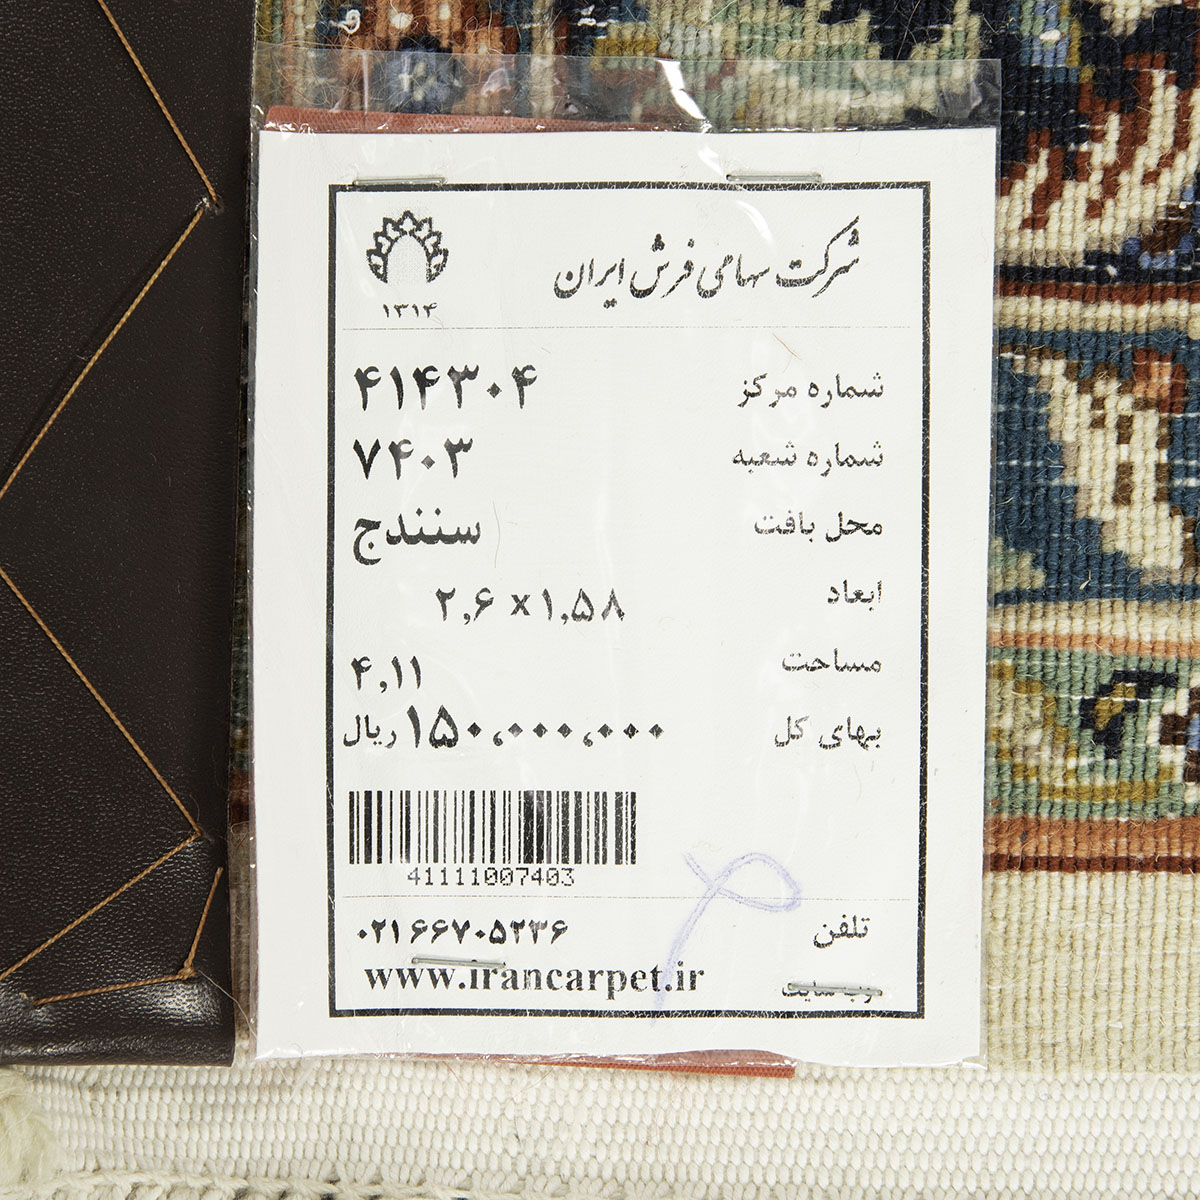 شرکت سهامی فرش ایران
۱۳۱۴
شماره مرکز ۴۱۴۳۰۴
شماره شعبه ۷۴۰۳
محل بافت سنندج
ابعاد ۲٫۶ × ۱٫۵۸
مساحت ۴٫۱۱
بهای کل ۱۵۰،۰۰۰،۰۰۰ ریال
41111007403
تلفن ۰۲۱۶۶۷۰۵۲۳۶
وب سایت www.irancarpet.ir